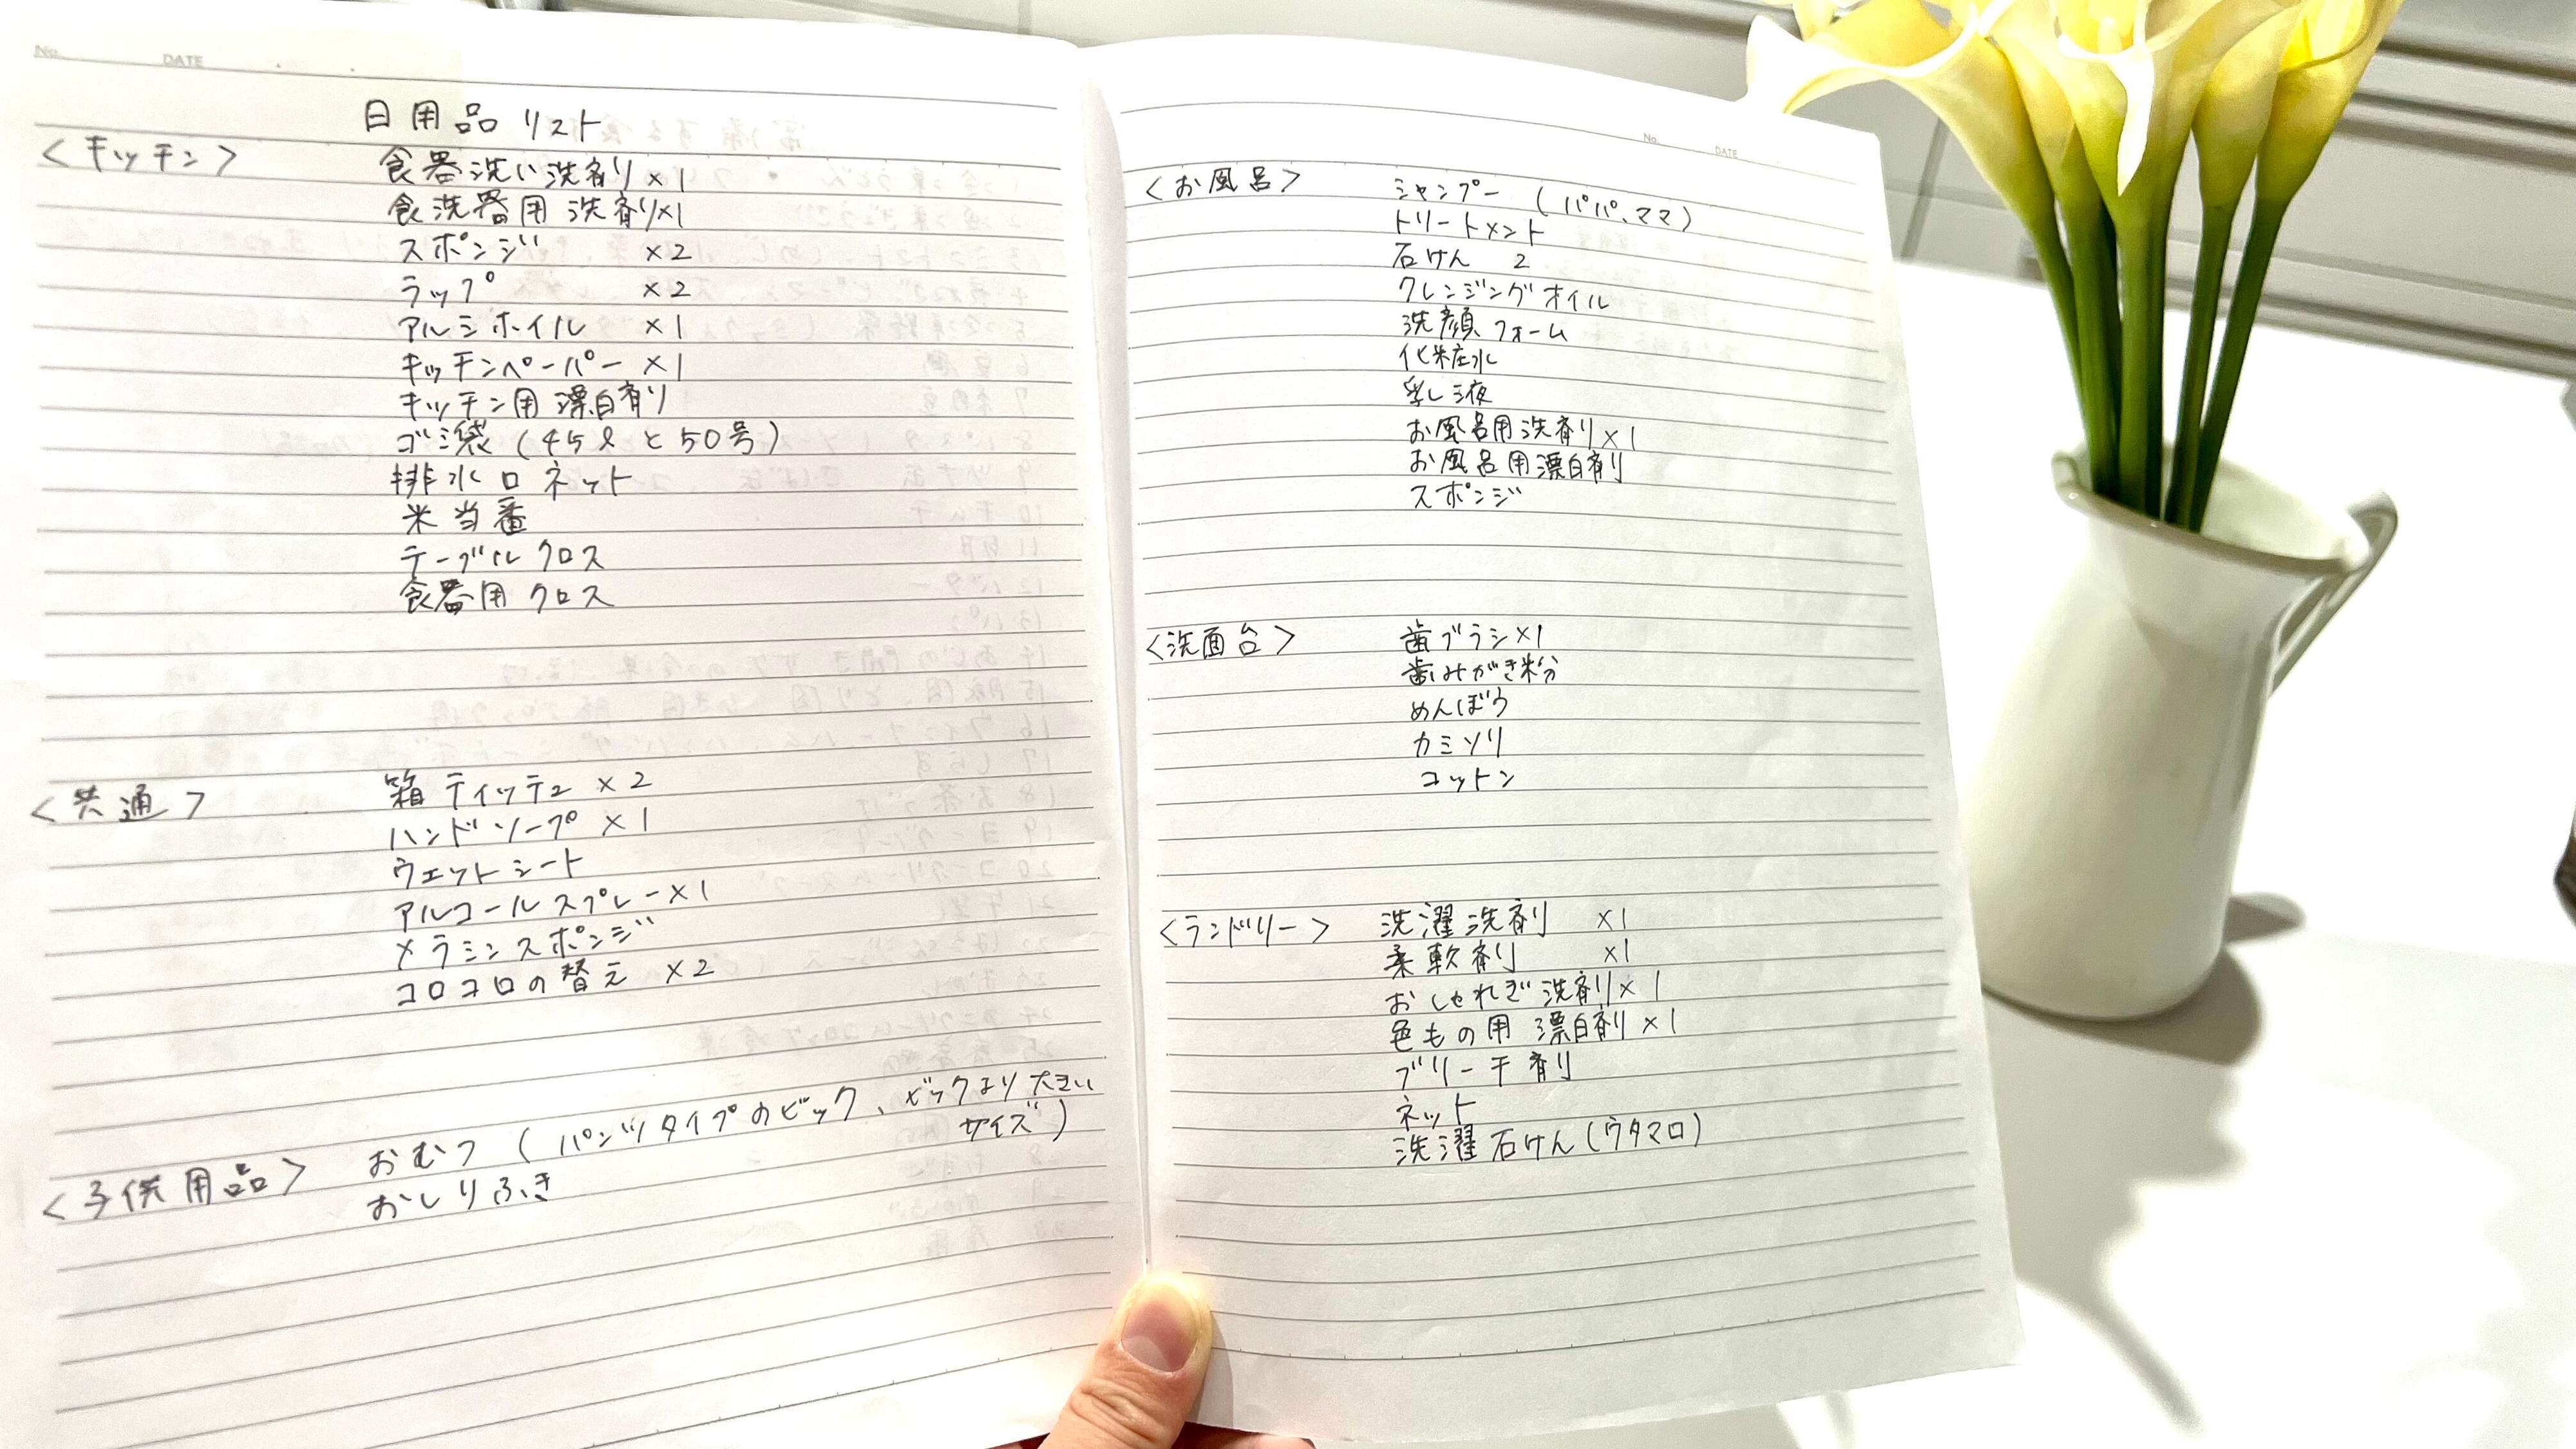 No.
DATE
日用品リスト
<キッチン>
食器洗い洗剤×1
食洗器用洗剤×1
スポンジ ×2
ラップ ×2
アルミホイル ×1
キッチンペーパー ×1
キッチン用漂白剤
ゴミ袋(45ℓと50号)
排水口ネット
米当番
テーブルクロス
食器用クロス
<共通>
箱ティッテュ×2
ハンドソープ×1
ウェットシート
アルコールスプレー×1
メラミンスポンジ
コロコロの替え ×2
<子供用品>
おむつ(パンツタイプのビック、ビックより大きい
サイズ)
おしりふき
No.
DATE
<お風呂>
シャンプー(パパ、ママ)
トリートメント
石けん 2
クレンジングオイル
洗顔フォーム
化粧水
乳液
お風呂用洗剤×1
お風呂用漂白剤
スポンジ
<洗面台>
歯ブラシ×1
歯みがき粉
めんぼう
カミソリ
コットン
<ランドリー>
洗濯洗剤 ×1
柔軟剤 ×1
おしゃれぎ洗剤×1
色もの用漂白剤×1
ブリーチ剤
ネット
洗濯石けん(ウタマロ)